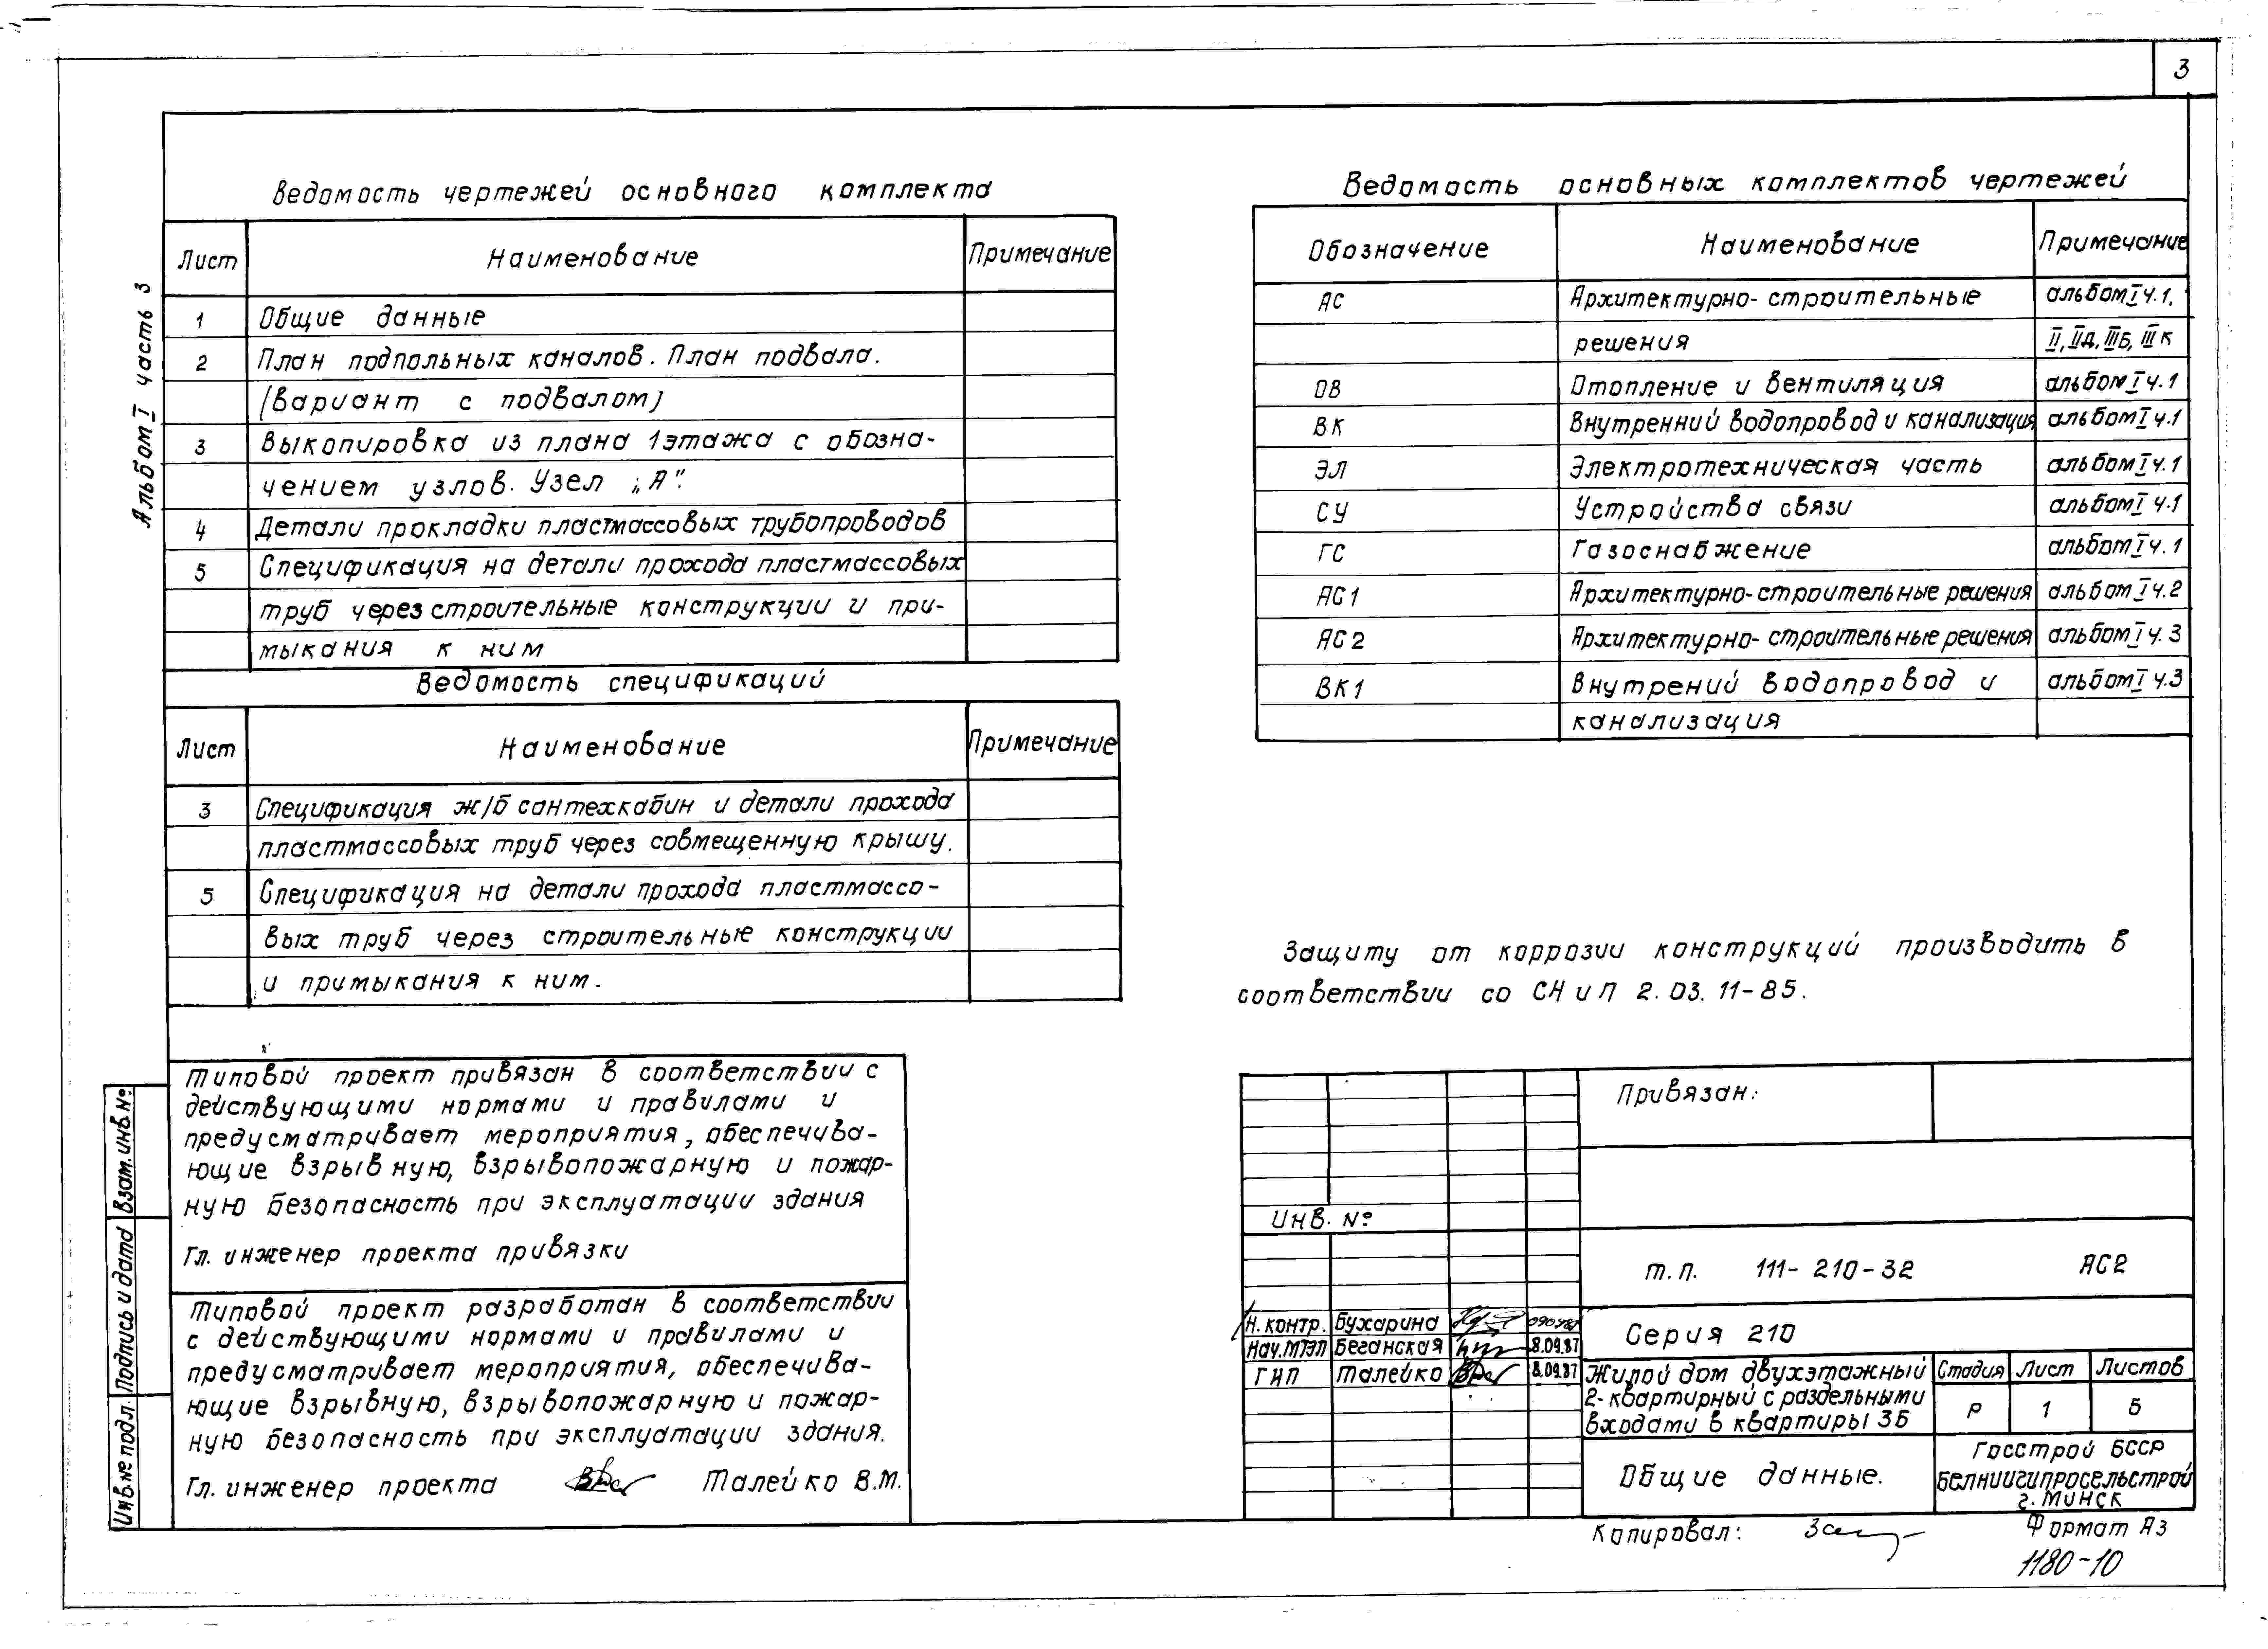 3
Альбом I часть 3
Ведомость чертежей основного комплекта
Лист Наименование Примечание
1 Общие данные
2 План подпольных каналов. План подвала.
(вариант с подвалом)
3 Выкопировка из плана 1 этажа с обозна-
чением узлов. Узел „А".
4 Детали прокладки пластмассовых трубопроводов
5 Спецификация на детали прохода пластмассовых
труб через строительные конструкции и при-
мыкания к ним
Ведомость спецификаций
Лист Наименование Примечание
3 Спецификация ж/б сантехкабин и детали прохода
пластмассовых труб через совмещенную крышу.
5 Спецификация на детали прохода пластмассо-
вых труб через строительные конструкции
и примыкания к ним.
Ведомость основных комплектов чертежей
Обозначение Наименование Примечание
АС Архитектурно-строительные альбом I ч.1,
решения II, IIА, IIIБ, III К
ОВ Отопление и вентиляция альбом I ч.1
ВК Внутренний водопровод и канализация альбом I ч.1
ЭЛ Электротехническая часть альбом I ч.1
СУ Устройства связи альбом I ч.1
ГС Газоснабжение альбом I ч.1
АС1 Архитектурно-строительные решения альбом I ч.2
АС2 Архитектурно-строительные решения альбом I ч.3
ВК1 Внутрений водопровод и альбом I ч.3
канализация
Защиту от коррозии конструкций производить в
соответствии со СН и П 2.03.11-85.
Типовой проект привязан в соответствии с
действующими нормами и правилами и
предусматривает мероприятия, обеспечива-
ющие взрывную, взрывопожарную и пожар-
ную безопасность при эксплуатации здания
Гл. инженер проекта привязки
Типовой проект разработан в соответствии
с действующими нормами и правилами и
предусматривает мероприятия, обеспечива-
ющие взрывную, взрывопожарную и пожар-
ную безопасность при эксплуатации здания.
Гл. инженер проекта Талейко В.М.
Взам. инв №
Подпись и дата
Инв.№ подл.
Привязан:
Инв. №
т.п. 111-210-32 АС2
Н. контр. Бухарина
Нач.МТЭП Беганская 8.09.87
ГИП Талейко 8.09.87
Серия 210
Жилой дом двухэтажный
2-квартирный с раздельными
входами в квартиры 3Б
Стадия Лист Листов
Р 1 5
Общие данные.
Госстрой БССР
Белниигипросельстрой
г. Минск
Копировал:
Формат А3
1180-10